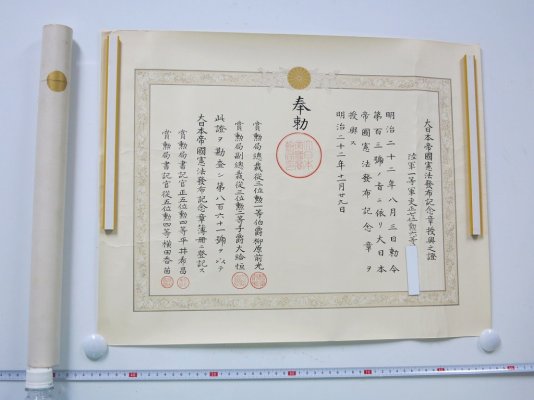 大日本帝國憲法發布記念章授與之證
陸軍一等軍吏正七位勲六等
明治二十二年八月三日勅令
第百三號ノ旨ニ依リ大日本
帝國憲法發布記念章ヲ
授與ス
明治二十二年十一月廿九日
奉勅
賞勲局總裁從三位勲一等伯爵柳原前光
賞勲局副總裁從三位勲二等子爵大給恒
此證ヲ勘査シ第八百六十一號ヲ以テ
大日本帝國憲法發布記念章簿冊ニ登記ス
賞勲局書記官正五位勲四等平井希昌
賞勲局書記官從五位勲四等横田香苗